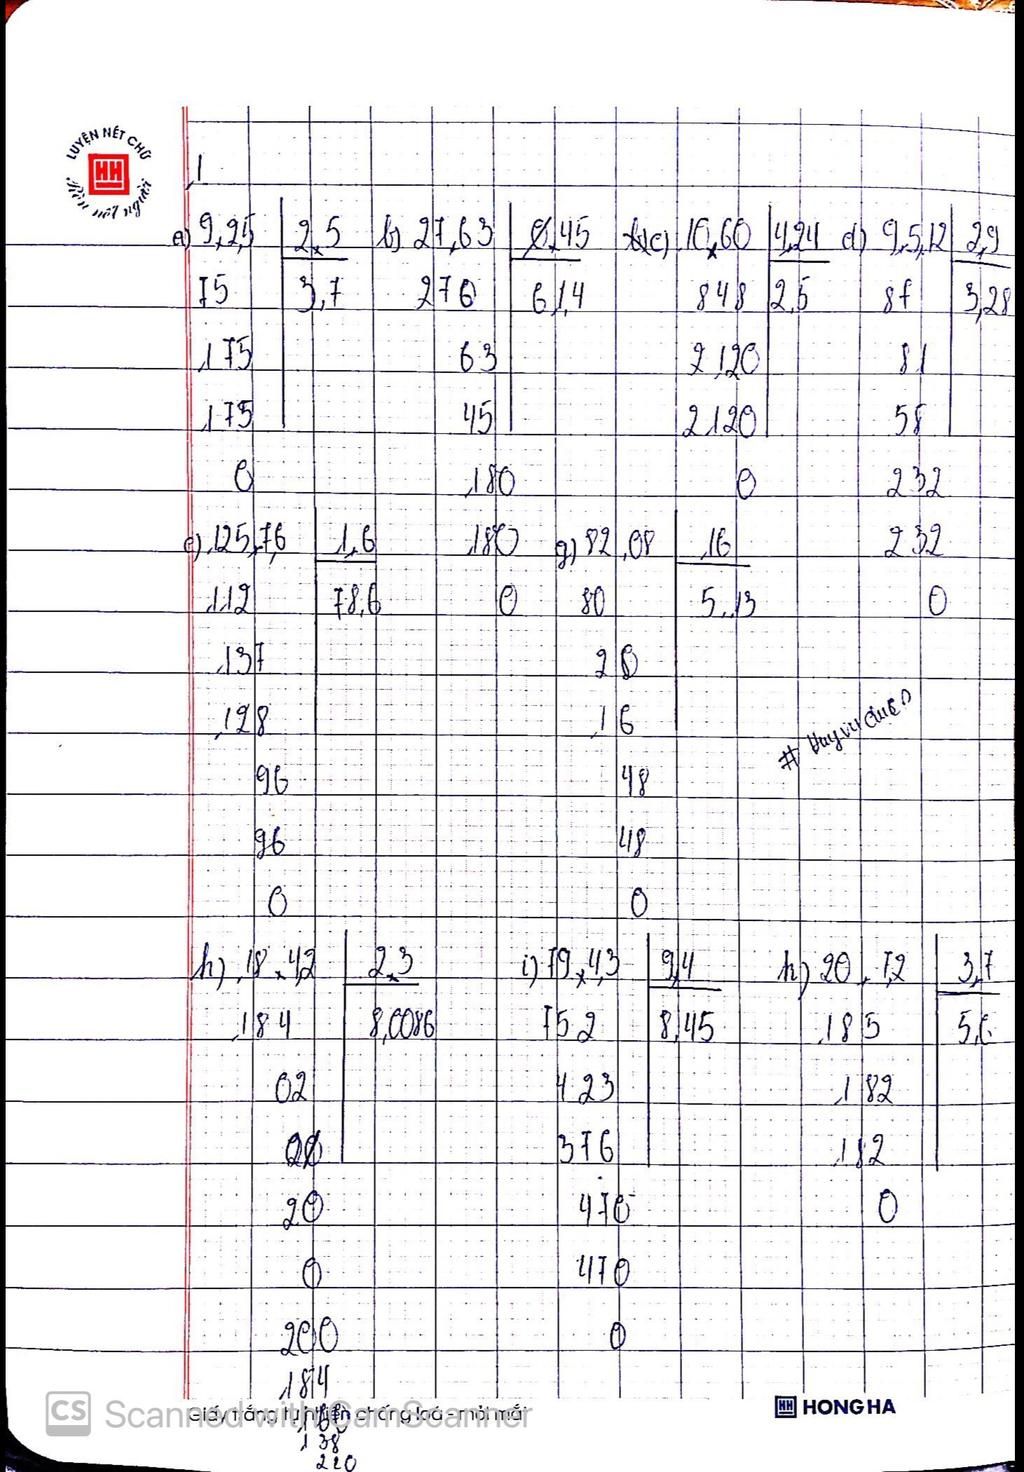 LUYỆN NÉT CHỮ
HH
Rèn nết người
1
a) 9,25 2,5 b) 27,63 0,45 c) 10,60 4,24 d) 9,5,12 2,9
75 3,7 276 61,4 848 2,5 87 3,28
175 63 2120 81
175 45 2120 58
0 180 0 232
e) 125,7,6 1,6 180 g) 82,08 16 232
112 78,6 0 80 5,13 0
137 20
128 16
96 48
96 48
0 0
h) 18,42 2,3 i) 79,43 9,4 h) 20,72 3,7
184 8,0086 752 8,45 185 5,6
02 423 182
376 182
20 470 0
0 470
200 0
184
138
220
Giấy trắng tự nhiên chống loá - mỏi mắt
HH HONG HA
CS Scanned with CamScanner